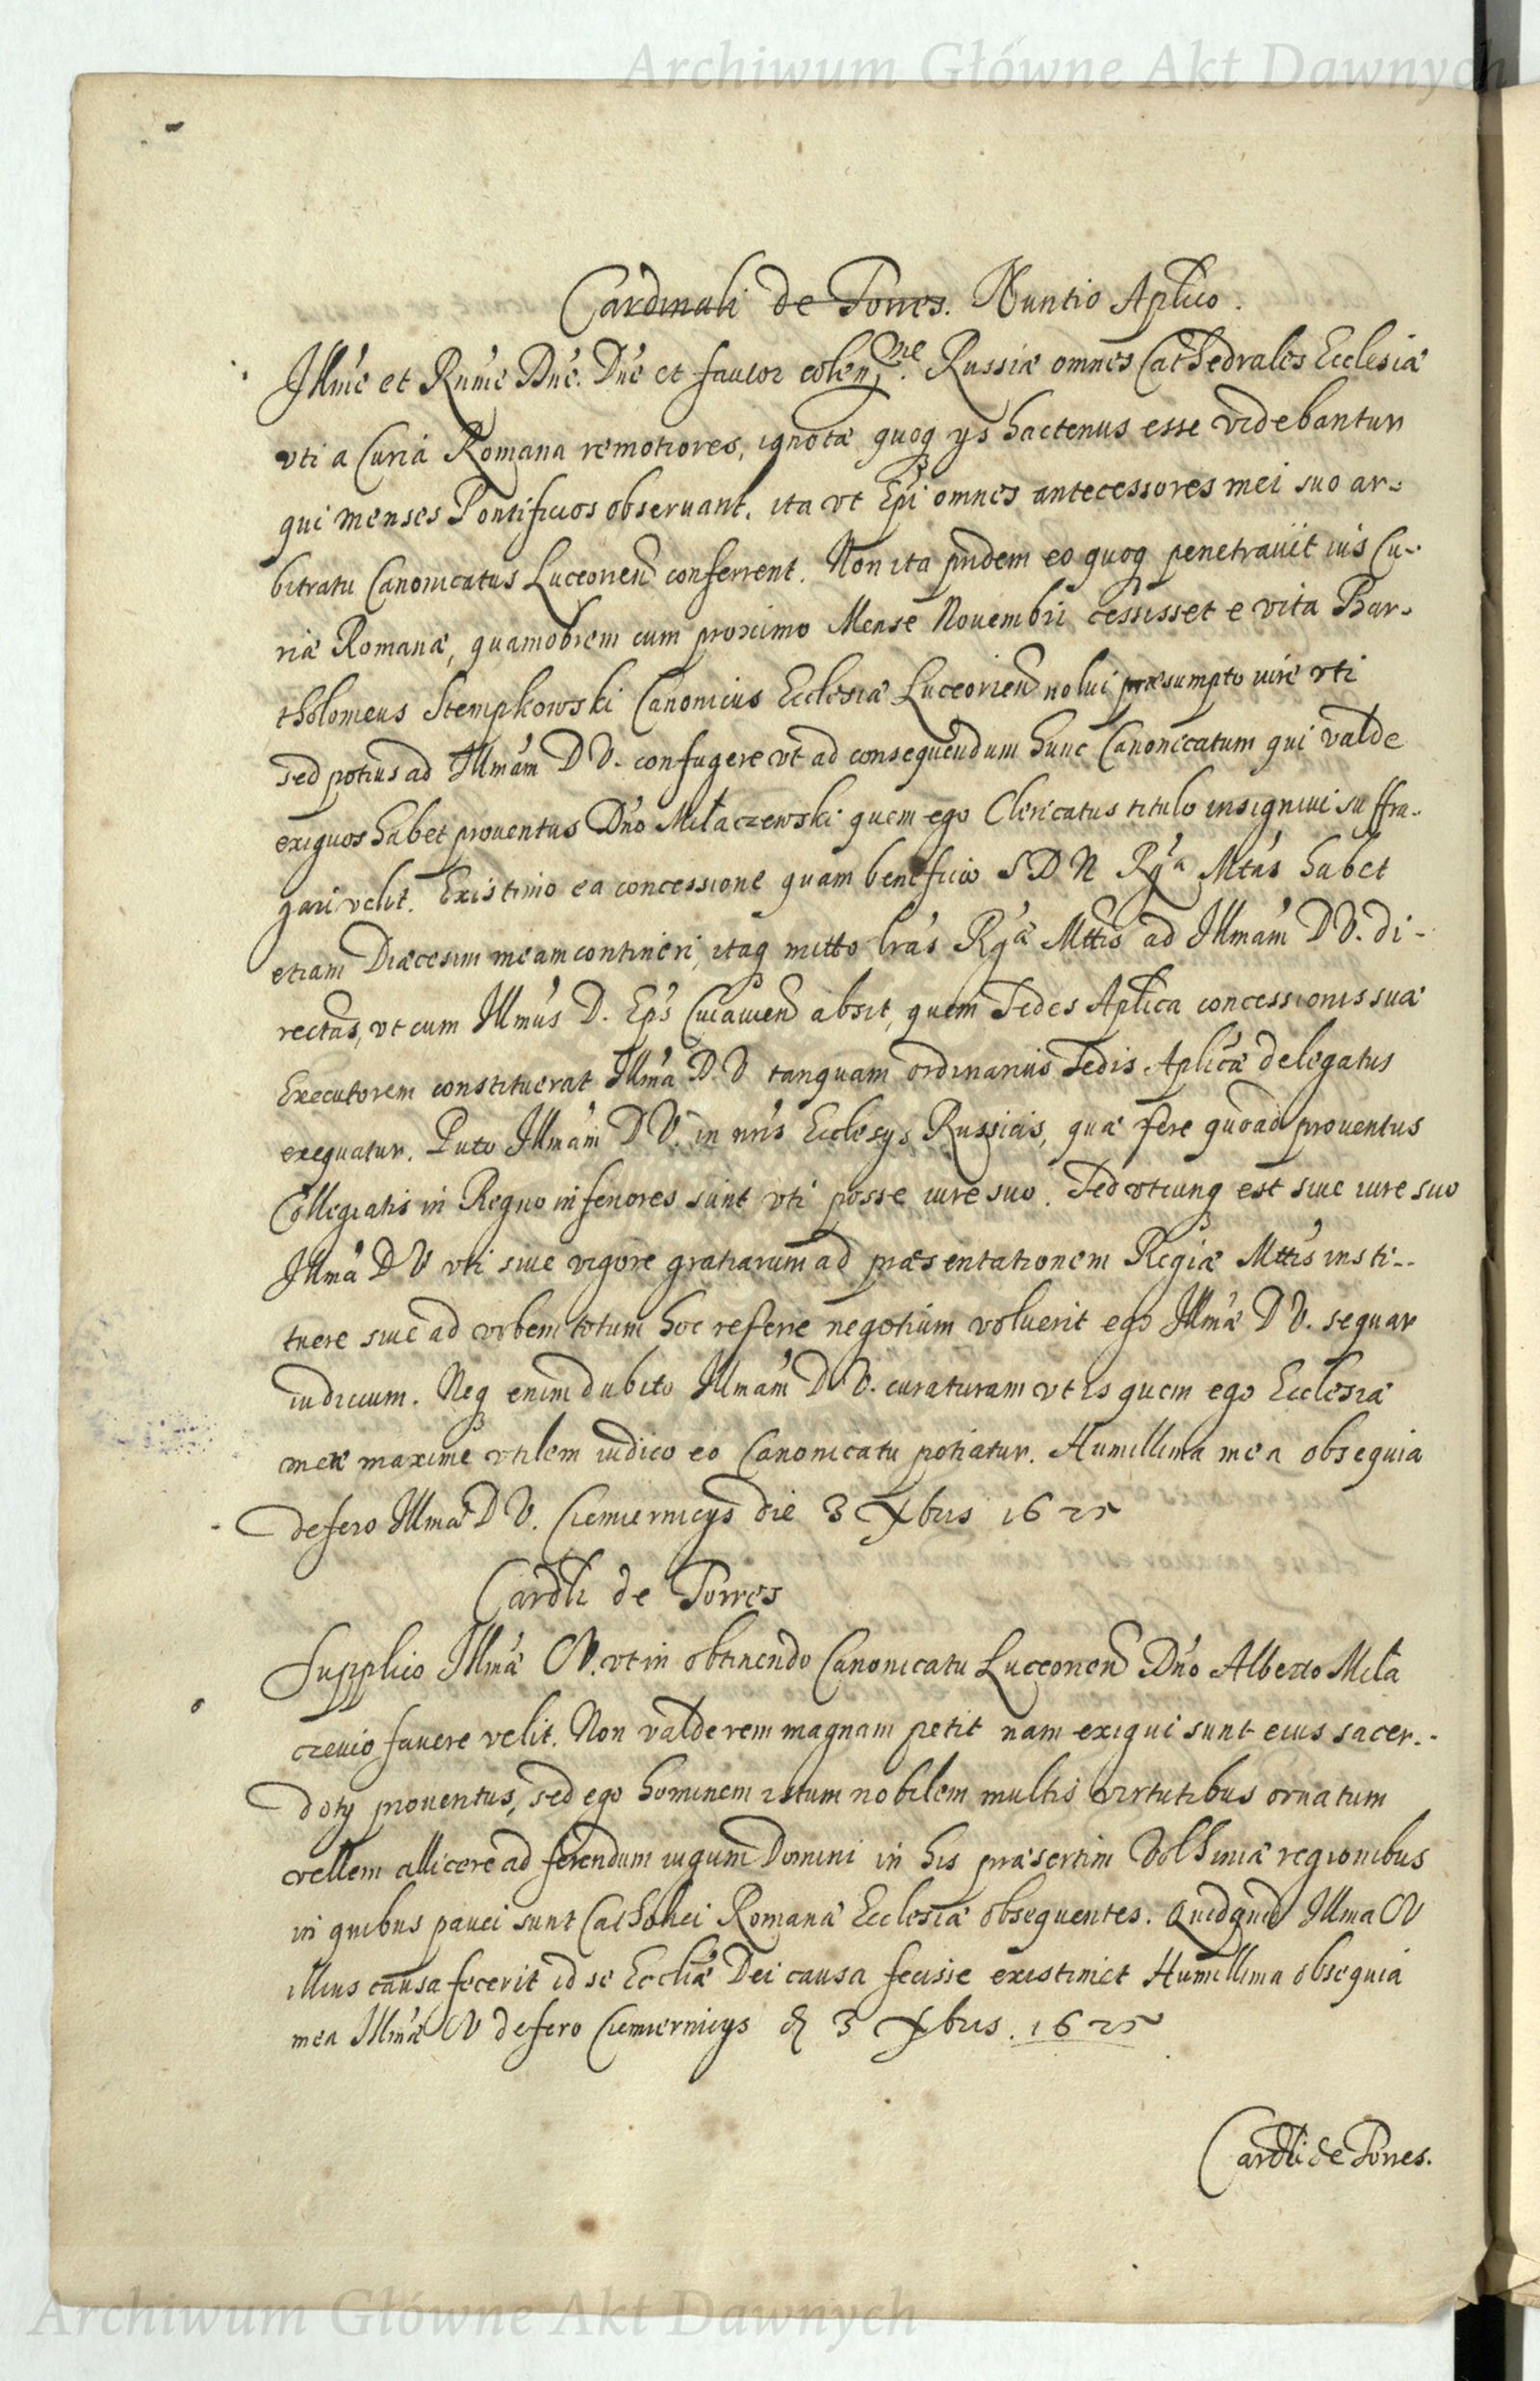 Archiwum Główne Akt Dawnych
Cardinali de Torres. Nuntio Aplico.
Illme et Rnme Dne. Dne et fautor colenme. Russiæ omnes Cathedrales Ecclesiæ
vti a Curia Romana remotiores, ignotæ quoq ys hactenus esse videbantur
qui menses Pontificios obseruant. ita vt Epi omnes antecessores mei suo ar-
bitratu Canonicatus Luceorien conferrent. Non ita pridem eo quoq penetrauit ius Cu-
riæ Romanæ, quamobrem cum proximo Mense Nouembri cessisset e vita Bar-
tholomeus Stempkowski Canonicus Ecclesiæ Luceorien nolui præsumpto iure vti
sed potius ad Illmam D V. confugere vt ad consequendum hunc Canonicatum qui valde
exiguos habet prouentus Dno Milaczewski quem ego Clericatus titulo insigniui suffra-
gari velit. Existimo ea concessione quam beneficio S D N Rga Mtas habet
etiam Diæcesim meam contineri, itaq mitto lras Rgæ Mttis ad Illmam D V. di-
rectas, vt cum Illmus D. Eps Cuiauien absit, quem Sedes Aplica concessionis suæ
Executorem constituerat Illma D. V tanquam ordinarius Sedis Aplicæ delegatus
exequatur. Puto Illmam D V. in nris Ecclesys Russicis, quæ fere quoad prouentus
Collegiatis in Regno inferiores sunt vti posse iure suo. Sed vtcunq est siue iure suo
Illma D V vti siue vigore gratiarum ad præsentationem Regiæ Mttis insti-
tuere siue ad vrbem totum hoc referre negotium voluerit ego Illmæ D V. sequar
iudicium. Neq enim dubito Illmam D. V. curaturam vt is quem ego Ecclesiæ
meæ maxime vtilem iudico eo Canonicatu potiatur. Humillima mea obsequia
defero Illmæ D V. Ciemiernicys die 3 Xbris 1625
Cardli de Torres
Supplico Illmæ CV. vt in obtinendo Canonicatu Luceorien Dno Alberto Mila
czeuio fauere velit. Non valde rem magnam petit nam exigui sunt eius sacer-
doty prouentus, sed ego hominem istum nobilem multis virtutibus ornatum
vellem allicere ad ferendum iugum Domini in his præsertim Volhiniæ regionibus
in quibus pauci sunt Catholici Romanæ Ecclesiæ obsequentes. Quidquid Illma CV
illius causa fecerit id se Eccliæ Dei causa fecisse existimet Humillima obsequia
mea Illmæ CV defero Ciemiernicys d 3 Xbris. 1625
Cardli de Torres.
Archiwum Główne Akt Dawnych